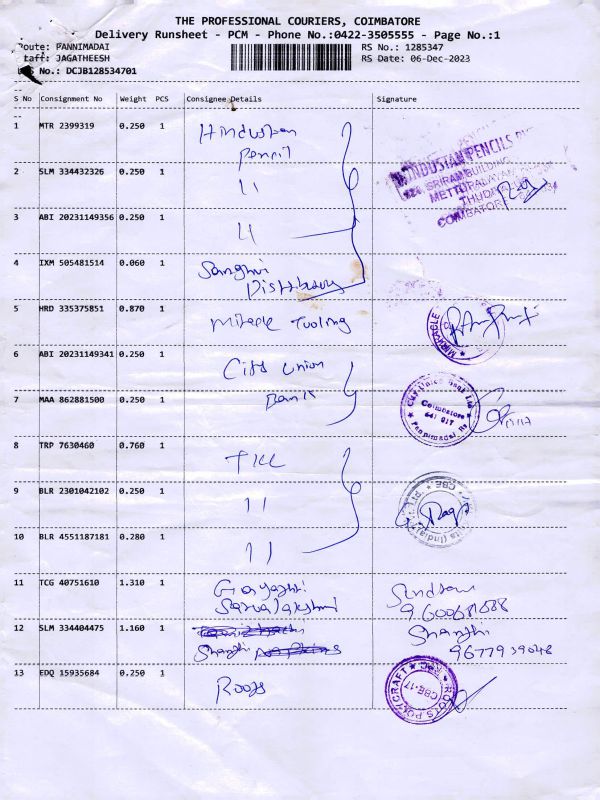 THE PROFESSIONAL COURIERS, COIMBATORE
Delivery Runsheet - PCM - Phone No.:0422-3505555 - Page No.:1
Route: PANNIMADAI
RS No.: 1285347
Staff: JAGATHEESH
RS Date: 06-Dec-2023
No.: DCJB128534701
S No Consignment No Weight PCS Consignee Details Signature
1 MTR 2399319 0.250 1 Hindustan
Pencil
HINDUSTAN PENCILS
SRIRAM BUILDING
METTUPALAYAM
COIMBATORE
2 SLM 334432326 0.250 1 11
3 ABI 20231149356 0.250 1 11
4 IXM 505481514 0.060 1 Sanghvi
5 HRD 335375851 0.870 1 Miracle Tooling
MIRACLE
6 ABI 20231149341 0.250 1 City Union
Bank
7 MAA 862881500 0.250 1
City Union Bank Ltd
Coimbatore
641 017
Pannimadai
8 TRP 7630460 0.760 1
9 BLR 2301042102 0.250 1 11
CBE
(India)
10 BLR 4551187181 0.280 1 11
11 TCG 40751610 1.310 1 Gayathri
12 SLM 334404475 1.160 1
Shanthi
Shanthi
13 EDQ 15935684 0.250 1 Roots
ROOTS POLYCRAFT
CBE-17